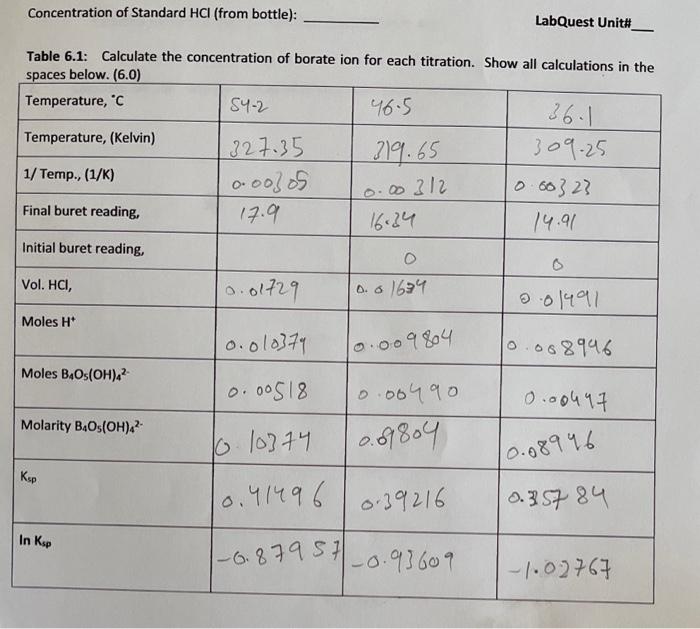 Concentration of Standard HCl (from bottle): ____________
LabQuest Unit#___
Table 6.1: Calculate the concentration of borate ion for each titration. Show all calculations in the
spaces below. (6.0)
Temperature, °C 54.2 46.5 36.1
Temperature, (Kelvin) 327.35 319.65 309.25
1/ Temp., (1/K) 0.00305 0.00312 0.00323
Final buret reading, 17.9 16.34 14.91
Initial buret reading, 0 0
Vol. HCl, 0.01729 0.01634 0.01491
Moles H⁺ 0.010374 0.009804 0.008946
Moles B₄O₅(OH)₄²⁻ 0.00518 0.00490 0.00447
Molarity B₄O₅(OH)₄²⁻ 0.10374 0.09804 0.08946
Ksp 0.41496 0.39216 0.35784
ln Ksp -0.87957 -0.93609 -1.02767